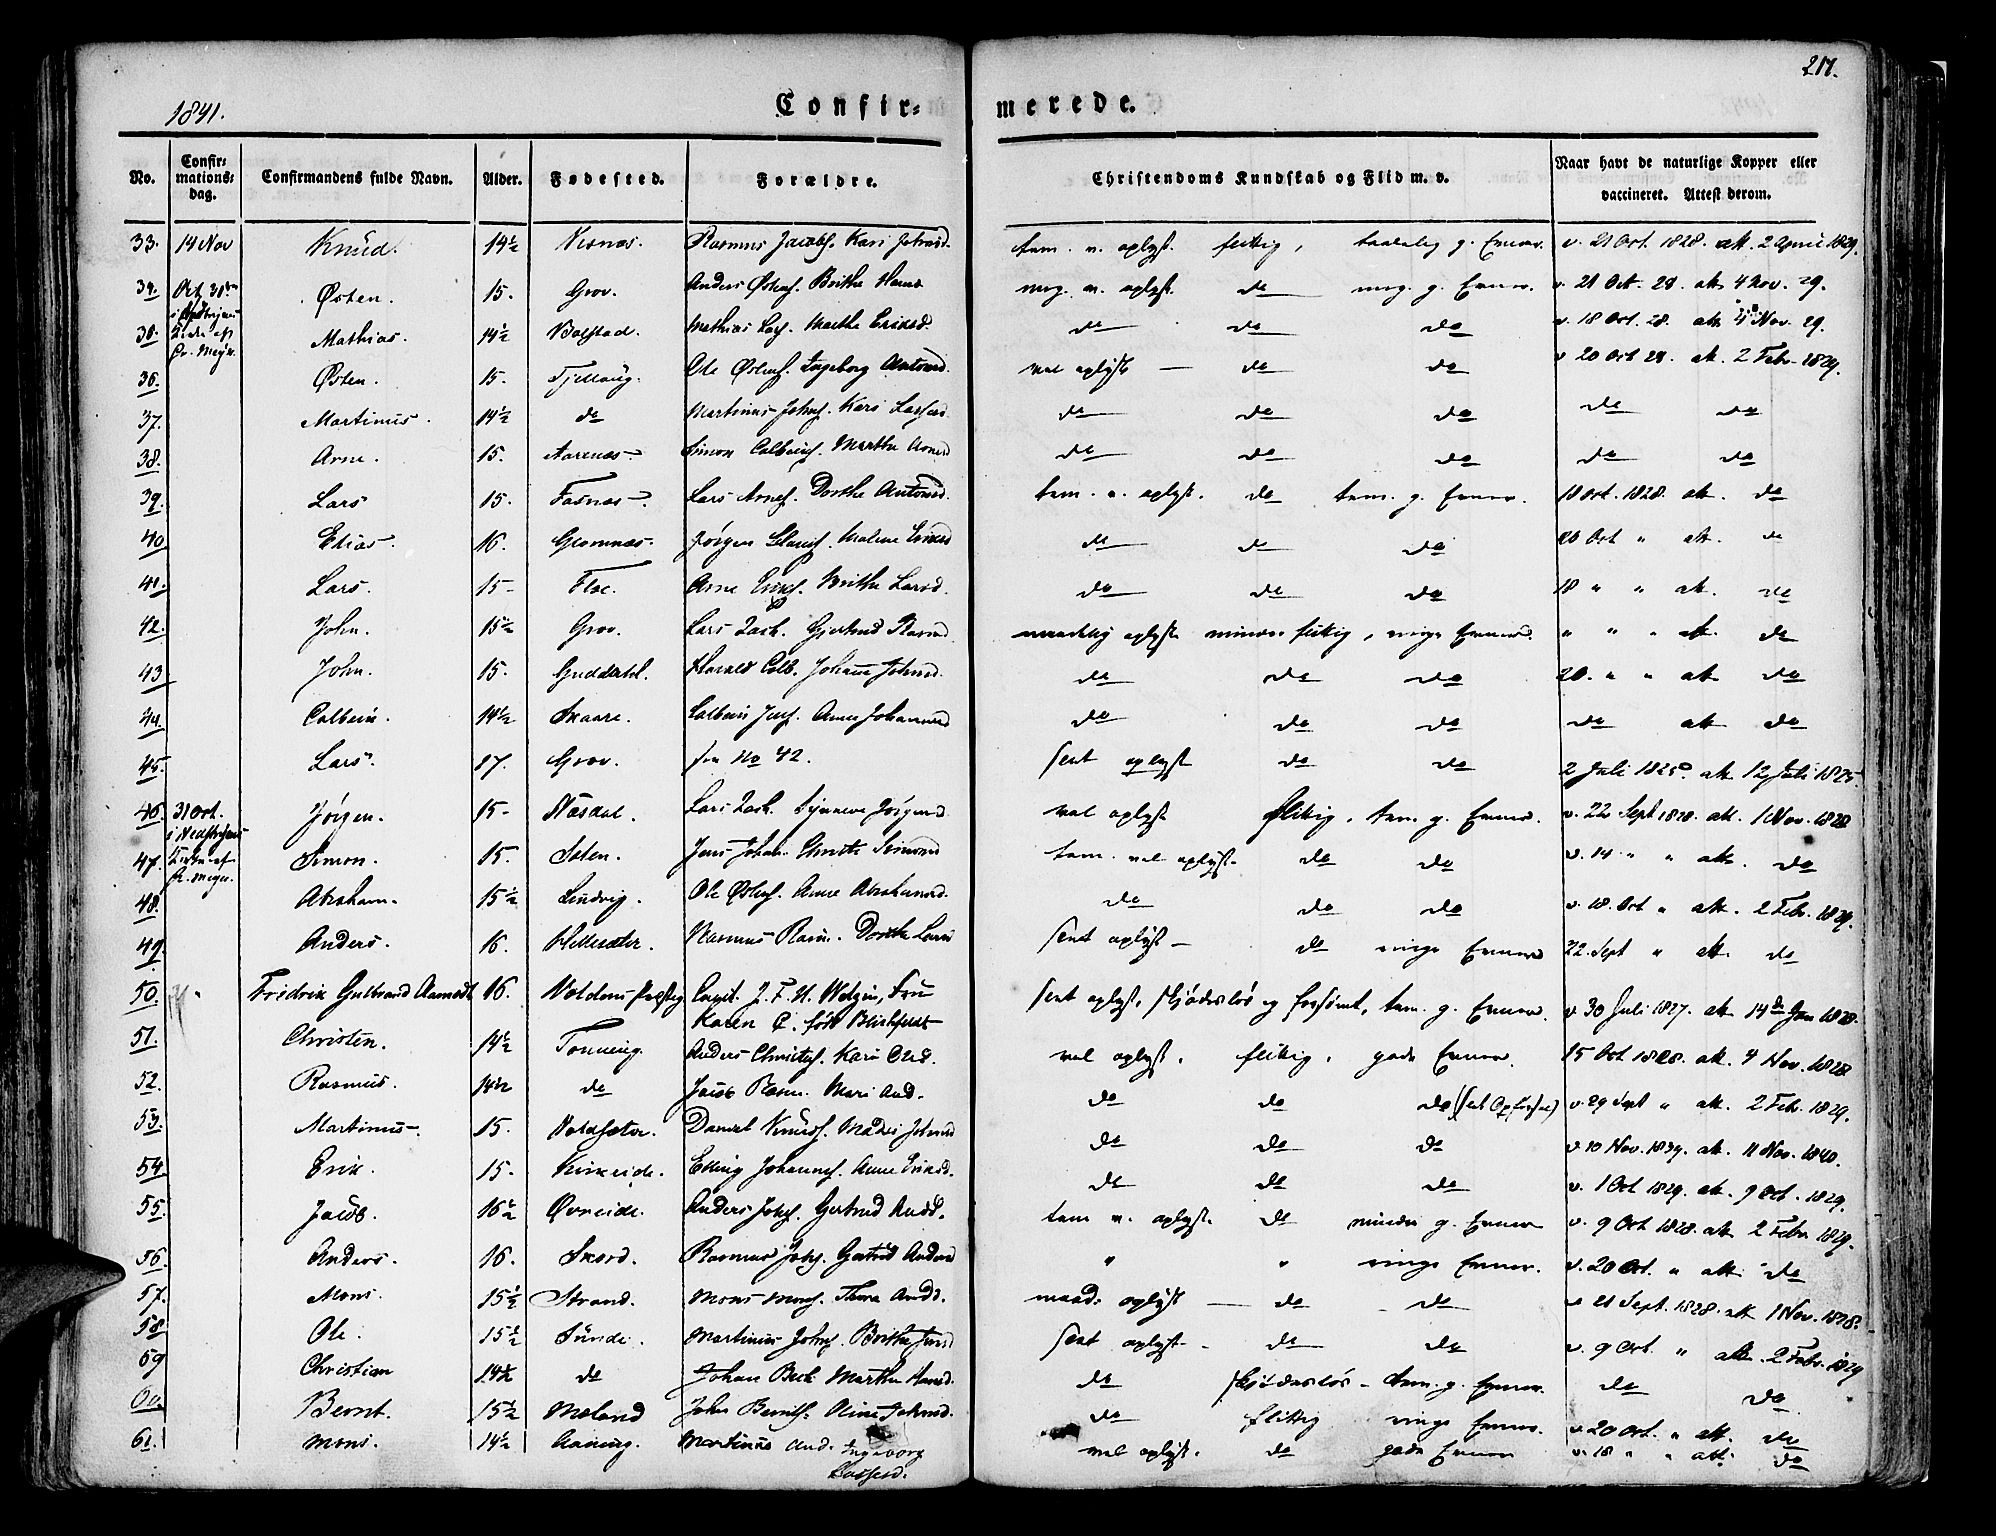 217.
1841.
Confir- merede.
No. Confir-mations-dag. Confirmandens fulde Navn. Alder. Fødested. Forældre. Christendoms Kundskab og Flid m. v. Naar havt de naturlige Kopper eller vaccineret. Attest derom.
33. 14 Nov Knud. 14½ Nesnæs. Rasmus Jacobs. Kari Johnsd. tem. v. oplyst. flittig, v. 21 Oct. 1828. att. 2 April 1829.
34. Østen. 15. Grov. Anders Østens. Brithe Hansd. meg. v. oplyst. do meg. g. Emner. v. 21 Oct. 28. att 4 Nov. 29.
35. Mathias. 14½ Bolstad. Mathias Marthe Ericsd. do do do v. 18 Oct. 28. att 4 Nov. 29.
36. Østen. 15. Tjellaug. Ole Østens. Ingeborg Antonsd. vel oplyst do do v 20 Oct 28. att. 2 Febr. 1829.
37. Martinus. 14½ do Martinus Johns. Kari Larsd. do do do do do
38. Arne. 15. Aarenæs. Simon Colbens. Marthe Arnesd do do do do do
39. Lars 15. Fosnæs. Lars Arnes. Dorthe Antonsd. tem. v. oplyst. do tem. g. Emner. 18 Oct. 1828. att. do
40 Elias. 16. Glomnæs. Jørgen Malene do do do 20 Oct " att. do
41. Lars. 15 Floe. Arne Erics. Brithe Larsd. do do do 18 " " att. do
42. John. 15½ Grov. Lars Zach. Gjertrud Rasmd maadelig oplyst mindre flittig, ringe Emner. " " " att. do
43 John. 15. Guddahl. Harald Colb. Johanne Johnsd. do do do 20. " " att do
44. Colbein. 14½ Skaare. Colbein Jens. Anne Johannesd do do do do att do
45. Lars. 17. Grov. see No 42. slet oplyst do do 2 Juli 1825. att. 12 Juli 1825.
46. 31 Oct. Jørgen. 15. Næsdal. Lars Zach. Synneve Jørgensd. vel oplyst flittig, tem. g. Emner. v. 22 Sept 1828. att. 1 Nov. 1828
47. Simon. 15. Jens Johan. Simonsd tem. vel oplyst. do do v. 14 " " att. do
48. Abraham. 15½ Lindvig. Ole Østens. Anne Abrahamsd. do do do v. 18. Oct " att. 2 Febr. 1829.
49. Anders. 16. Hellesæter. Rasmus Rasm. Dorthe Larsd slet oplyst do ringe Emner 22. Sept " att do
50. Fredrik Gulbrand 16. Voldens Præstg Capit. J. F. H. Fru Karen C. født Blichfeldt slet oplyst, skjødesløs og forsømt, tem. g. Emner. v. 30 Juli 1827. att 14de Jan 1828.
51. Christen. 14½ Tonning. Anders Christens. Kari Olsd. vel oplyst. flittig. gode Emner. 15 Oct 1828. att. 4 Nov. 1828
52. Rasmus. 14½ do Jacob Rasm. Mari And. do do do v. 29 Sept " att. 2 Febr. 1829.
53. Martinus. 15. Voldsæter. Daniel Knuds. Johnsd do do do v 10 Nov. 1839. att. 11 Nov. 1840.
54. Erik. 15. Kirkeide. Elling Johannes. Anne Ericsd. do do do v. 1 Oct 1829. att. 9 Oct. 1829.
55. Jacob. 16½ Øvreide. Anders Johs. Gertrud Andd. tem v. oplyst. do mindre g. Emner v. 9 Oct 1828. att 2 Febr 1829.
56. Anders. 16. Skord. Rasmus Johs. Gertrud Andersd " " ringe Emner. v. 20 Oct. " att do
57. Mons. 15½ Strand. Mons Mons. Thora Andd. maad. oplyst do do v 21 Sept. 1828. att 1 Nov. 1828.
58 Ole. 15½ Sunde. Martinus Johs. Brithe Jensd slet oplyst. do do v. 9 Oct. " att. 2 Febr. 1829
59 Christian 14½ do Johan Beck Marthe Hansd. do skjødesløs tem. g. Emner. do do
60. Bernt. 15½ Meland John Bernts. Oline Johnsd. do flittig ringe Emner. v. 20 Oct. " att. do
61. Mons. 14½ Aaning. Martinus And. Ingeborg Lassesd. vel oplyst. do gode Emner v. 18 " " att. do